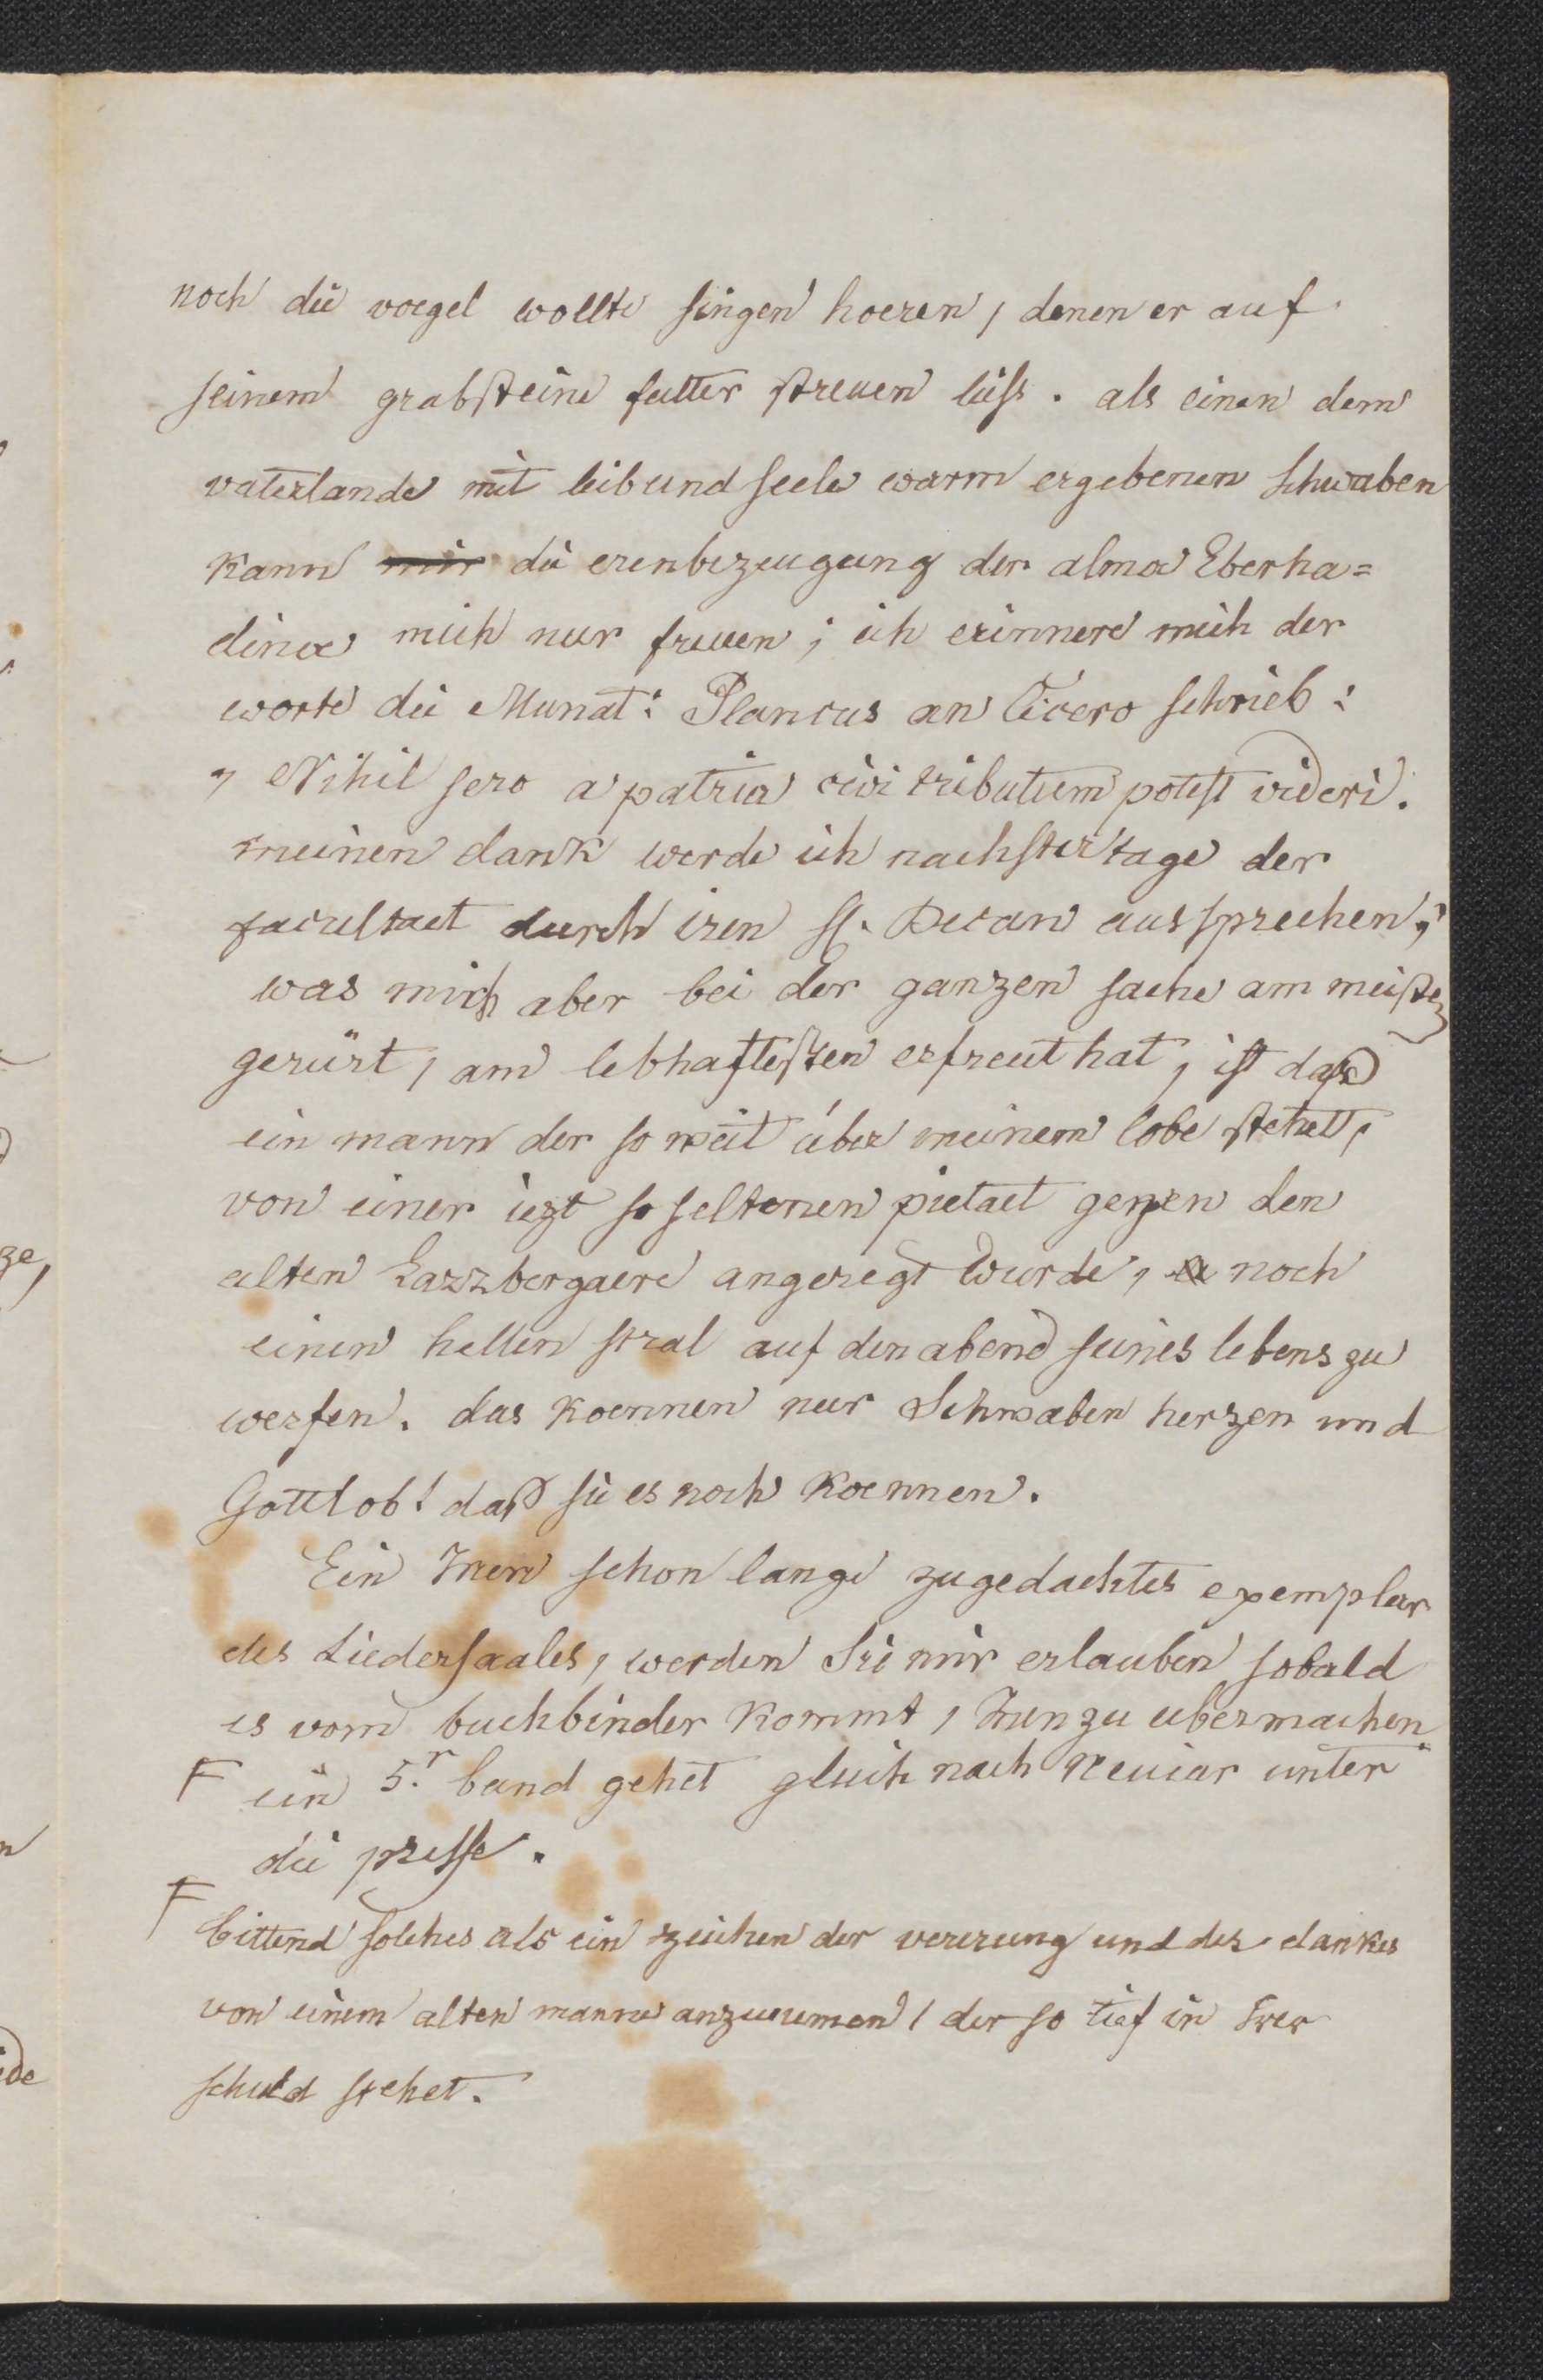 noch die voegel wollte singen hoeren, denen er auf
seinem grabsteine futter streuen liess. als einen dem
vaterlande mit leib und seele warm ergebenen Schwaben
kann mir die erenbezeugung der almæ Eberha=
dinæ mich nur freuen; ich erinnere mich der
worte die Munat: Plancus an Cicero schrieb:
„ Nihil sero a patria civi tributum potest videri.
meinen dank werde ich nachster tage der
facultaet durch iren H. Decan aussprechen;
was mich aber bei der ganzen sache am meisten
gerürt, am lebhaftesten erfreut hat, ist dass
ein mann der so weit über meinem lobe stehet,
von einer iezt so seltenen pietaet gegen den
alten Lazzbergaere angeregt wurde, noch
einen hellen stral auf den abend seines lebens zu
werfen. das koennen nur Schwaben herzen und
Gottlob! daß sie es noch koennen.
Ein Inen schon lange zugedachtes exemplar
des Liedersaales, werden Sie mir erlauben sobald
es vom buchbinder kommt, Inen zu ubermachen.
F ein 5.r band gehet gleich nach Neuiar unter
die presse.
F bittend solches als ein zeichen der vererung und des dankes
von einem alten manne anzunemen, der so tief in Irer
schuld stehet.